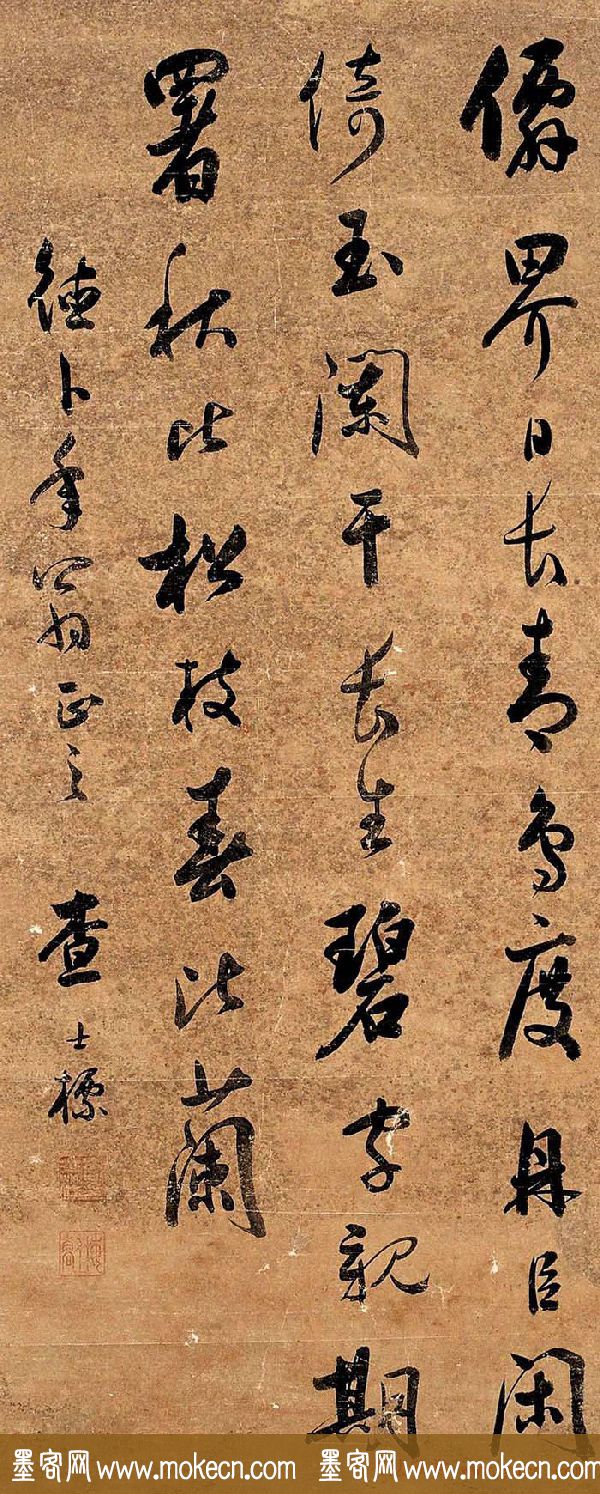 僊界日長青鳥度丹臣闲
倚玉闌干長生碧字親期
署秋比松枝春比蘭
德卜年翁正之 查士標
墨客网 www.mokecn.com 墨客网 www.mokecn.com